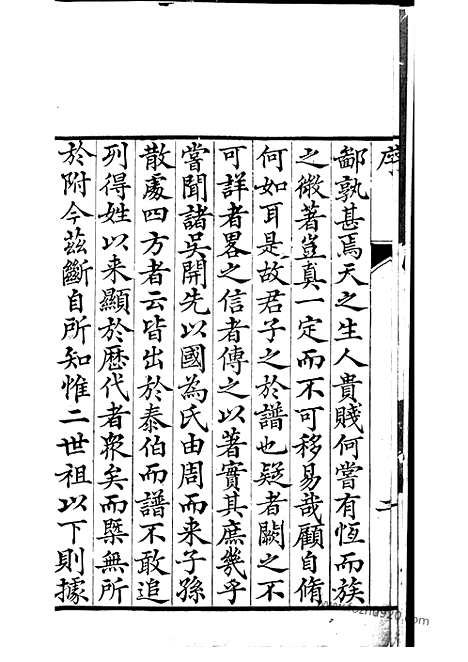 序
二
鄙孰甚焉天之生人貴賤何嘗有恆而族
之微著豈真一定而不可移易哉顧自脩
何如耳是故君子之於譜也疑者闕之不
可詳者畧之信者傳之以著實其庶幾乎
嘗聞諸吳開先以國為氏由周而来子孫
散處四方者云皆出於泰伯而譜不敢追
列得姓以来顯於歴代者衆矣而槩無所
於附今茲斷自所知惟二世祖以下則據